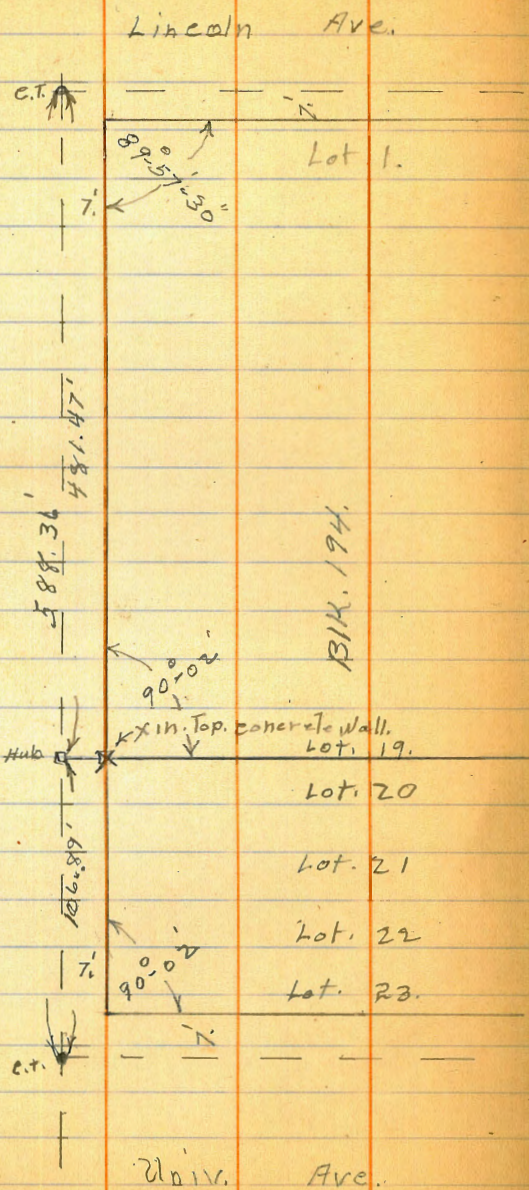 Lincoln Ave.
C.T.
7'
Lot 1.
89°-57'-30"
7'
481.47'
588.36'
Blk. 194.
90°-02'
X in. Top. concrete Wall.
Hub
Lot. 19.
Lot. 20
106.89'
Lot. 21
Lot. 22
90°-02'
7'
Lot. 23.
7'
C.T.
Univ. Ave.